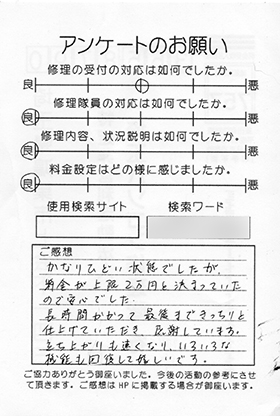 アンケートのお願い
修理の受付の対応は如何でしたか。
良 悪
修理隊員の対応は如何でしたか。
良 悪
修理内容、状況説明は如何でしたか。
良 悪
料金設定はどの様に感じましたか。
良 悪
使用検索サイト 検索ワード
ご感想
かなりひどい状態でしたが、
料金が上限2万円と決まっていた
ので安心でした。
長時間かかって最後まできっちりと
仕上げていただき、感謝しています。
立ち上がりも速くなり、いろいろな
機能も回復して嬉しいです。
ご協力ありがとう御座いました。今後の活動の参考にさせ
て頂きます。ご感想はHPに掲載する場合が御座います。